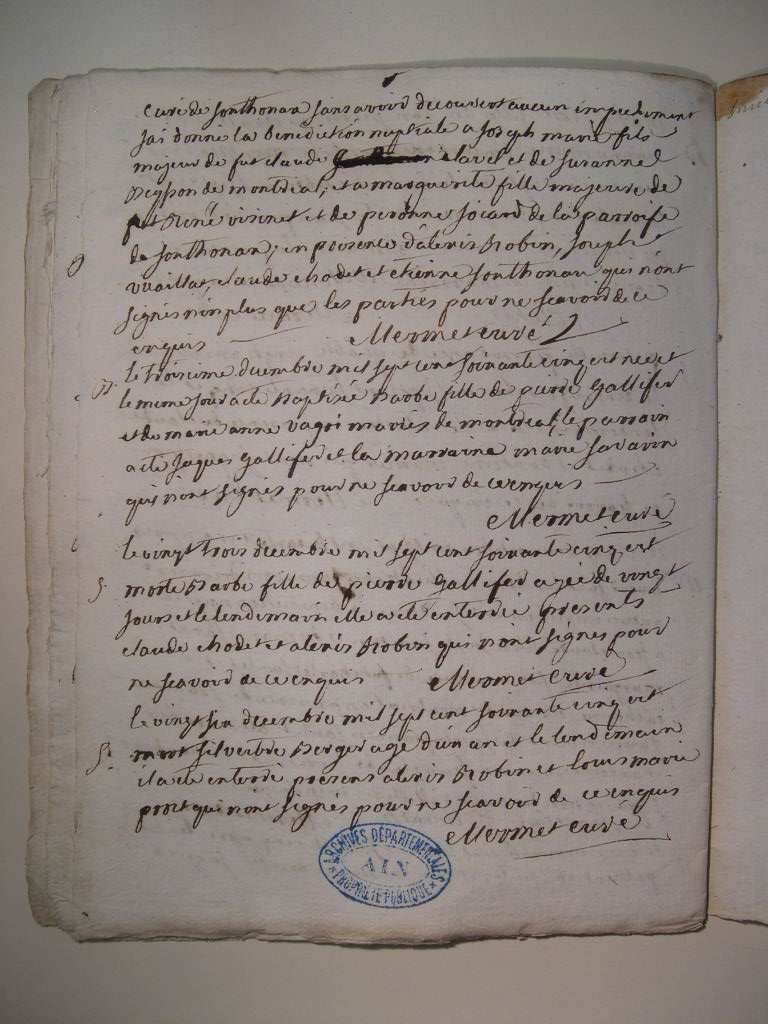 curé de sonthonan sans avoir decouvert aucun impediment
jai donne la benediction nuptiale a Joseph marie fils
majeur de fut claude clavel et de suzanne
de montreal, et a marguerite fille majeure de
fut René vivinet et de peronne jocard de la parroisse
de sonthonan, en presence d'alexis Robin, Joseph
vuaillat, claude chodet et etienne sonthonan qui n'ont
signés non plus que les parties pour ne scavoir de ce
enquis Mermet curé
B. le troisieme decembre mil sept cent soixante cinq est nee et
le meme jour a ete Baptisée Barbe fille de pierre Gallifer
et de marie anne vagoi mariés de montreal, le parrain
a ete Jaques Gallifer et la marraine marie savarin
qui n'ont signés pour ne scavoir de ce enquis
Mermet curé
le vingt trois decembre mil sept cent soixante cinq est
S. morte Barbe fille de pierre Gallifer agée de vingt
jours et le lendemain elle a ete enterrée presents
claude chodet et alexis Robin qui n'ont signés pour
ne scavoir de ce enquis Mermet curé
le vingt six decembre mil sept cent soixante cinq est
S. mort silvestre Berger agé d'un an et le lendemain
il a ete enterré presens alexis Robin et louis marie
prost qui n'ont signés pour ne scavoir de ce enquis
Mermet curé
ARCHIVES DÉPARTEMENTALES
AIN
PROPRIÉTÉ PUBLIQUE